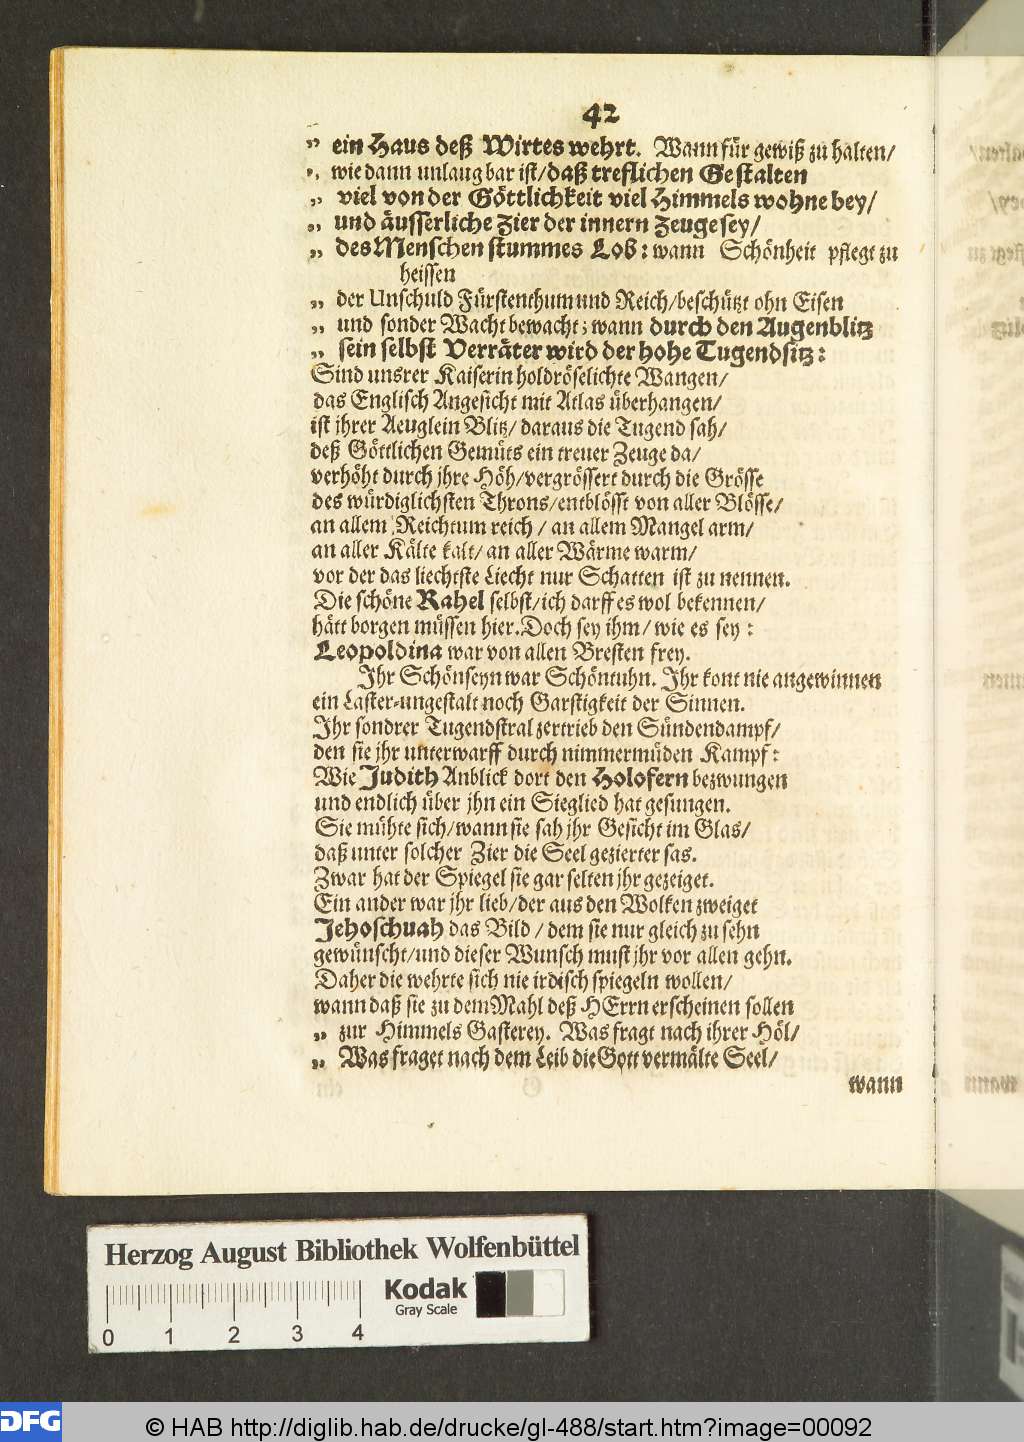 42
„ ein Haus deß Wirtes wehrt. Wann für gewiß zu halten/
„ wie dann unlaugbar ist/ daß treflichen Gestalten
„ viel von der Göttlichkeit viel Himmels wohne bey/
„ und äusserliche Zier der innern Zeuge sey/
„ des Menschen stummes Lob: wann Schönheit pflegt zu
heissen
„ der Unschuld Fürstenthum und Reich/ beschützt ohn Eisen
„ und sonder Wacht bewacht; wann durch den Augenblitz
„ sein selbst Verräter wird der hohe Tugendsitz:
Sind unsrer Kaiserin holdröselichte Wangen/
das Englisch Angesicht mit Atlas überhangen/
ist jhrer Aeuglein Blitz/ daraus die Tugend sah/
deß Göttlichen Gemüts ein treuer Zeuge da/
verhöht durch jhre Höh/ vergrössert durch die Grösse
des würdiglichsten Throns/ entblösst von aller Blösse/
an allem Reichtum reich / an allem Mangel arm/
an aller Kälte kalt/ an aller Wärme warm/
vor der das liechtste Liecht nur Schatten ist zu nennen.
Die schöne Rahel selbst/ ich darff es wol bekennen/
hätt borgen müssen hier. Doch sey ihm/ wie es sey :
Leopoldina war von allen Bresten frey.
Ihr Schönseyn war Schöntuhn. Ihr kont nie angewinnen
ein Laster-ungestalt noch Garstigkeit der Sinnen.
Ihr sondrer Tugendstral zertrieb den Sündendampf/
den sie jhr unterwarff durch nimmermüden Kampf:
Wie Judith Anblick dort den Holofern bezwungen
und endlich über jhn ein Sieglied hat gesungen.
Sie mühte sich/ wann sie sah jhr Gesicht im Glas/
daß unter solcher Zier die Seel gezierter sas.
Zwar hat der Spiegel sie gar selten jhr gezeiget.
Ein ander war jhr lieb/ der aus den Wolken zweiget
Jehoschuah das Bild / dem sie nur gleich zu sehn
gewünscht/ und dieser Wunsch must jhr vor allen gehn.
Daher die wehrte sich nie irdisch spiegeln wollen/
wann daß sie zu dem Mahl deß HErrn erscheinen sollen
„ zur Himmels Gasterey. Was fragt nach ihrer Höl/
„ Was fraget nach dem Leib die Gott vermälte Seel/
wann
Herzog August Bibliothek Wolfenbüttel
Kodak
Gray Scale
0 1 2 3 4
DFG
© HAB http://diglib.hab.de/drucke/gl-488/start.htm?image=00092